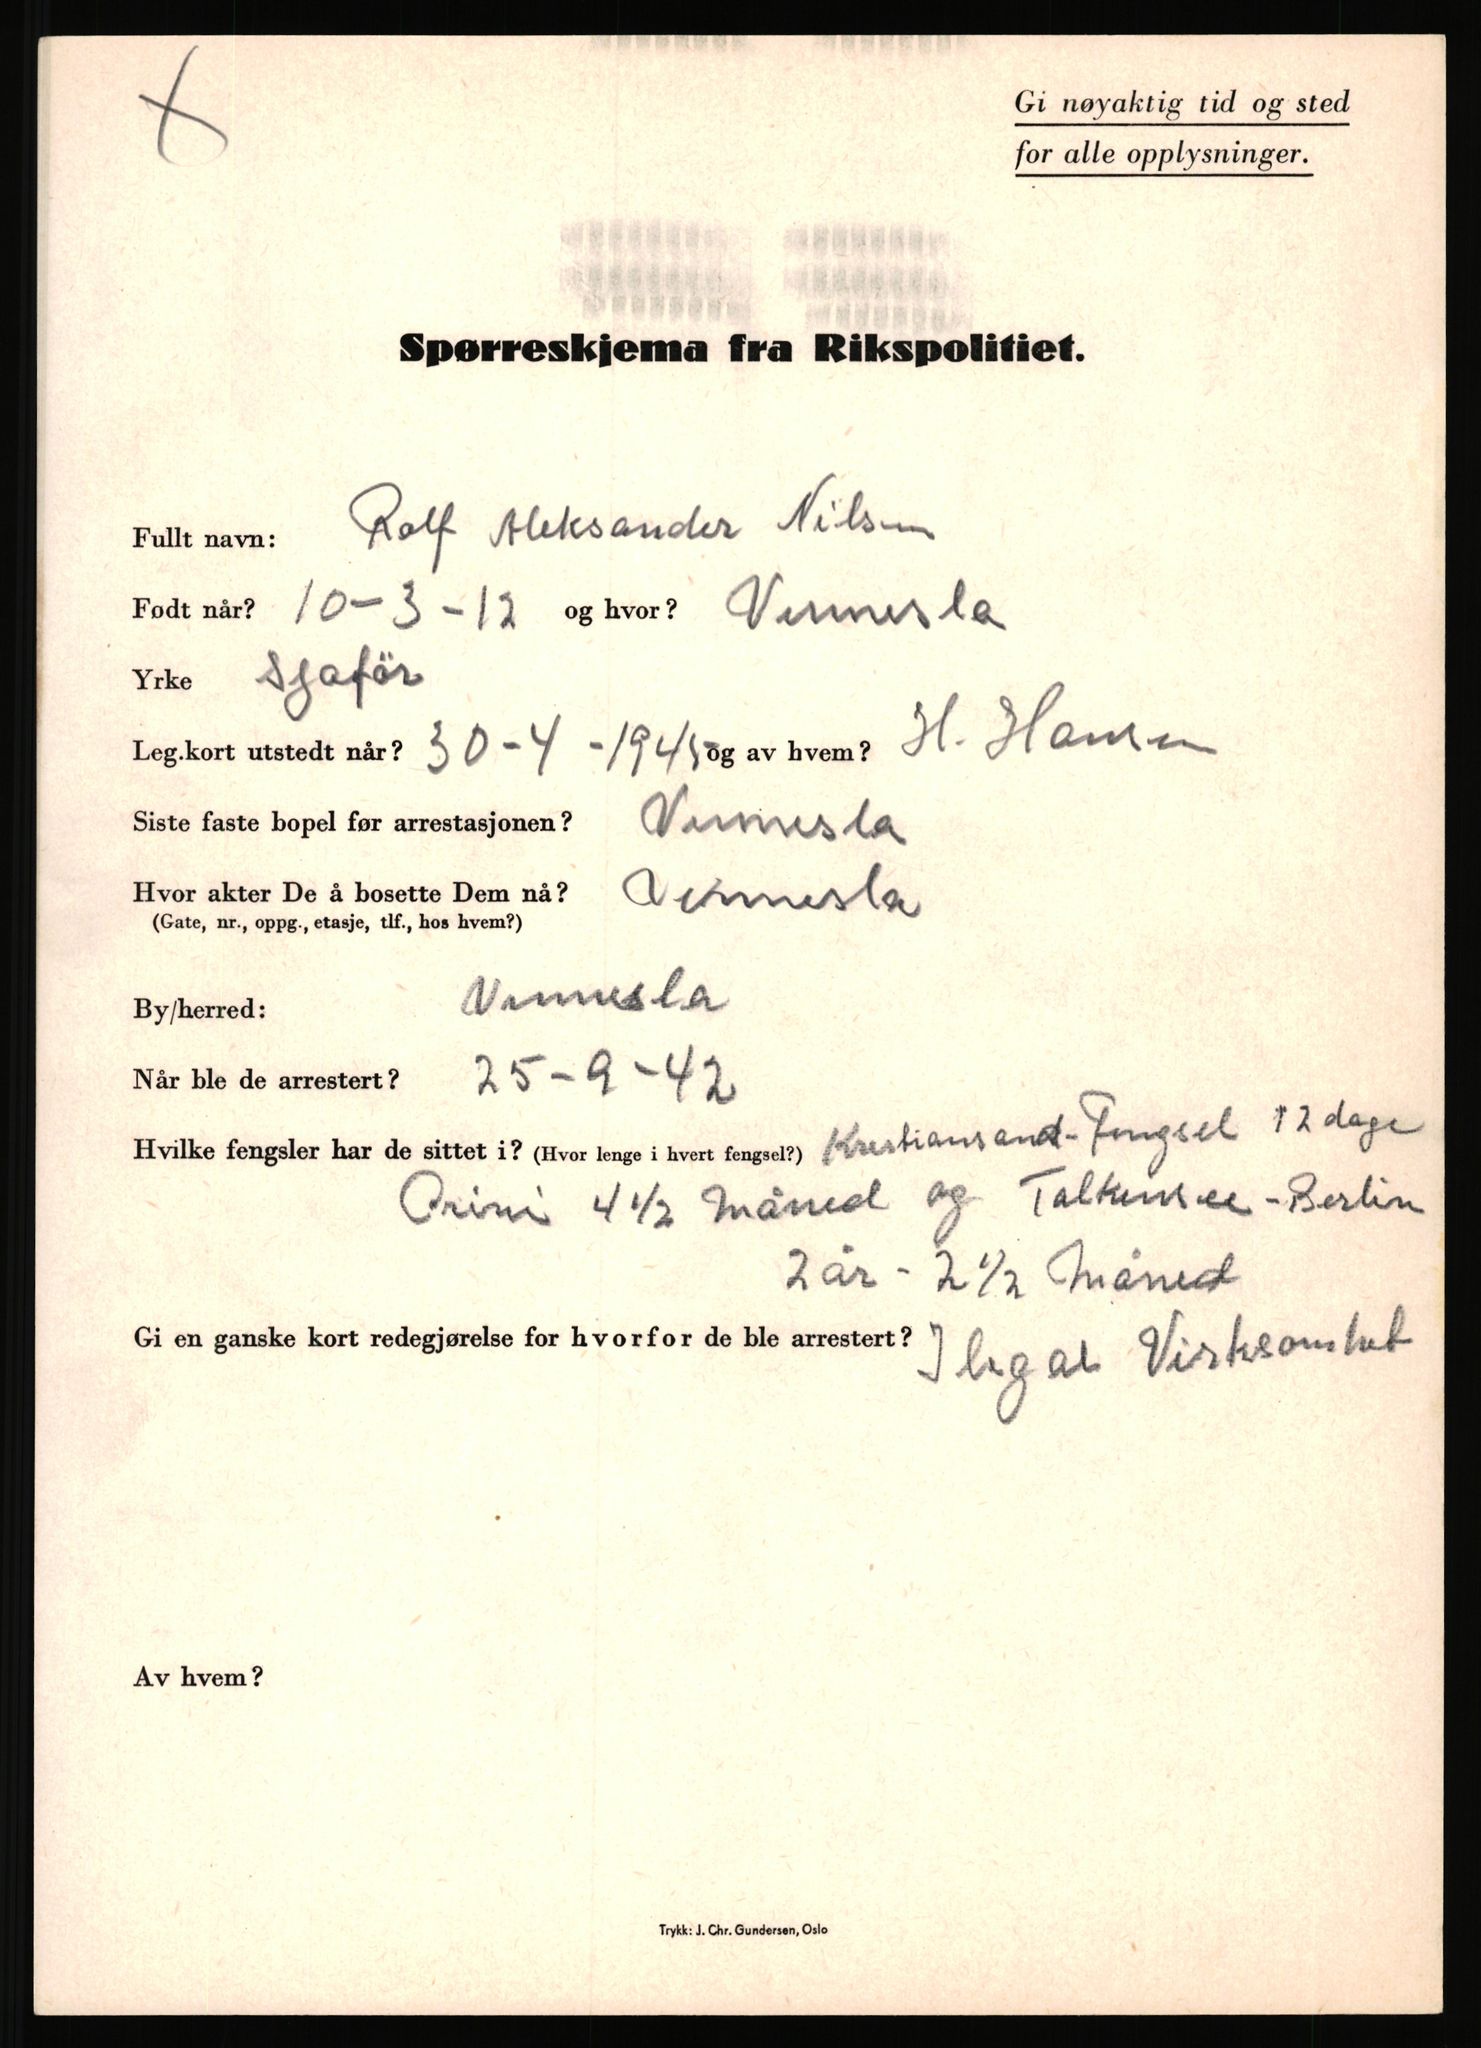 Gi nøyaktig tid og sted
for alle opplysninger.
Spørreskjema fra Rikspolitiet.
Fullt navn: Rolf Aleksander Nilsen
Født når? 10-3-12 og hvor? Vennesla
Yrke Sjaför
Leg.kort utstedt når? 30-4-1945 og av hvem? H. Hansen
Siste faste bopel før arrestasjonen? Vennesla
Hvor akter De å bosette Dem nå? Vennesla
(Gate, nr., oppg., etasje, tlf., hos hvem?)
By/herred: Vennesla
Når ble de arrestert? 25-9-42
Hvilke fengsler har de sittet i? (Hvor lenge i hvert fengsel?) Kristiansand-Fengsel 12 dage
Grini 4 1/2 Måned og Falkensee-Berlin
2 år - 2 1/2 Måned
Gi en ganske kort redegjørelse for hvorfor de ble arrestert? Ilegal Virksomhet
Av hvem?
Trykk: J. Chr. Gundersen, Oslo